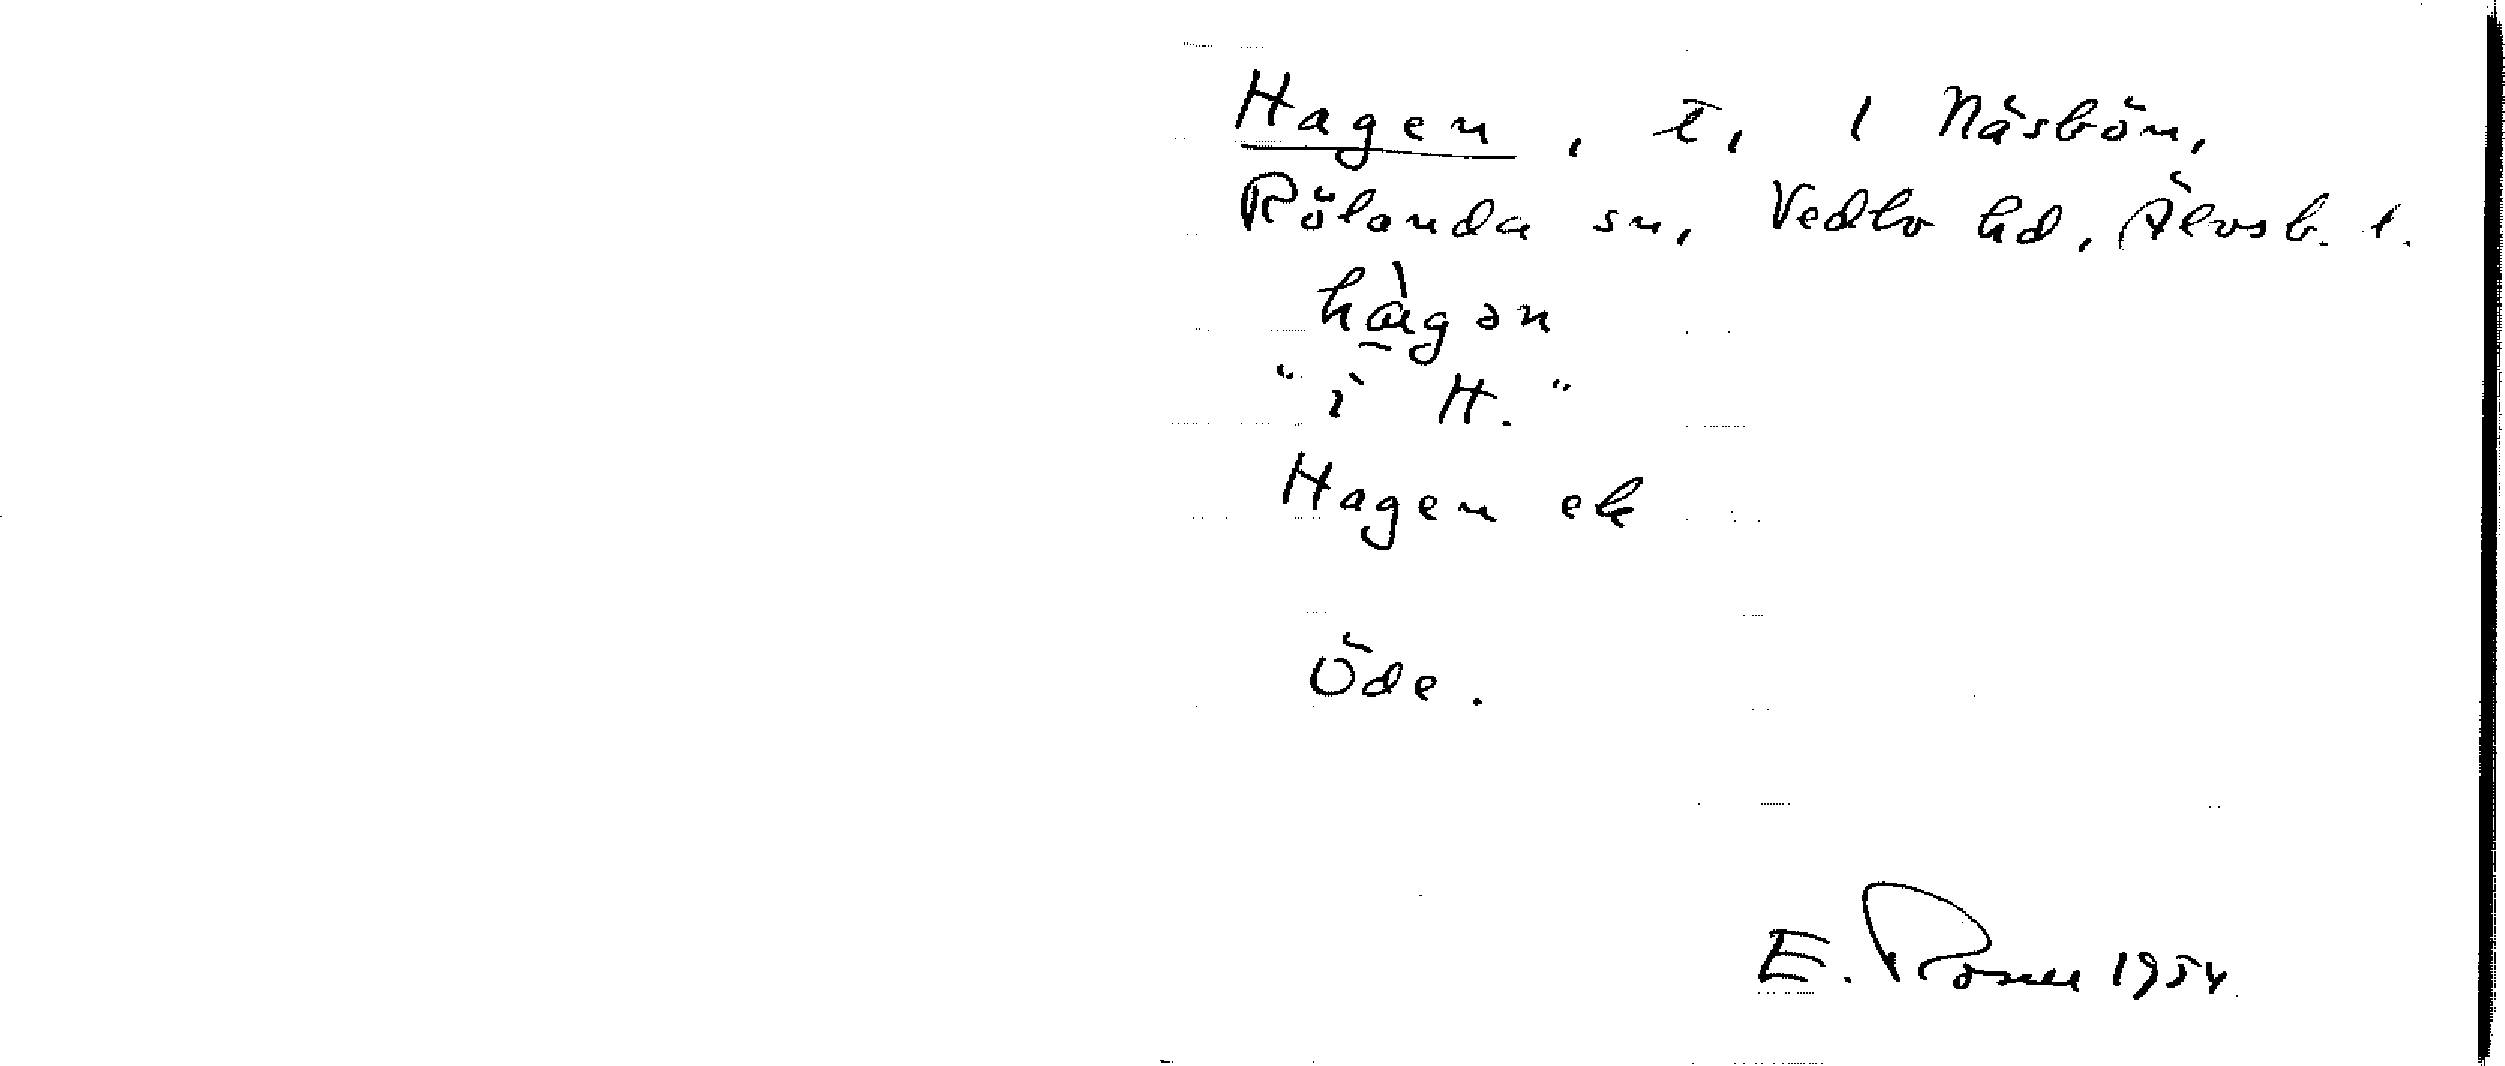 Hagen, t, i Näsbön,
Rölanda sn, Vedbo hd, Älvsb. l.
hàgən
"i H."
Hagen ek
Öde.
E. 1954